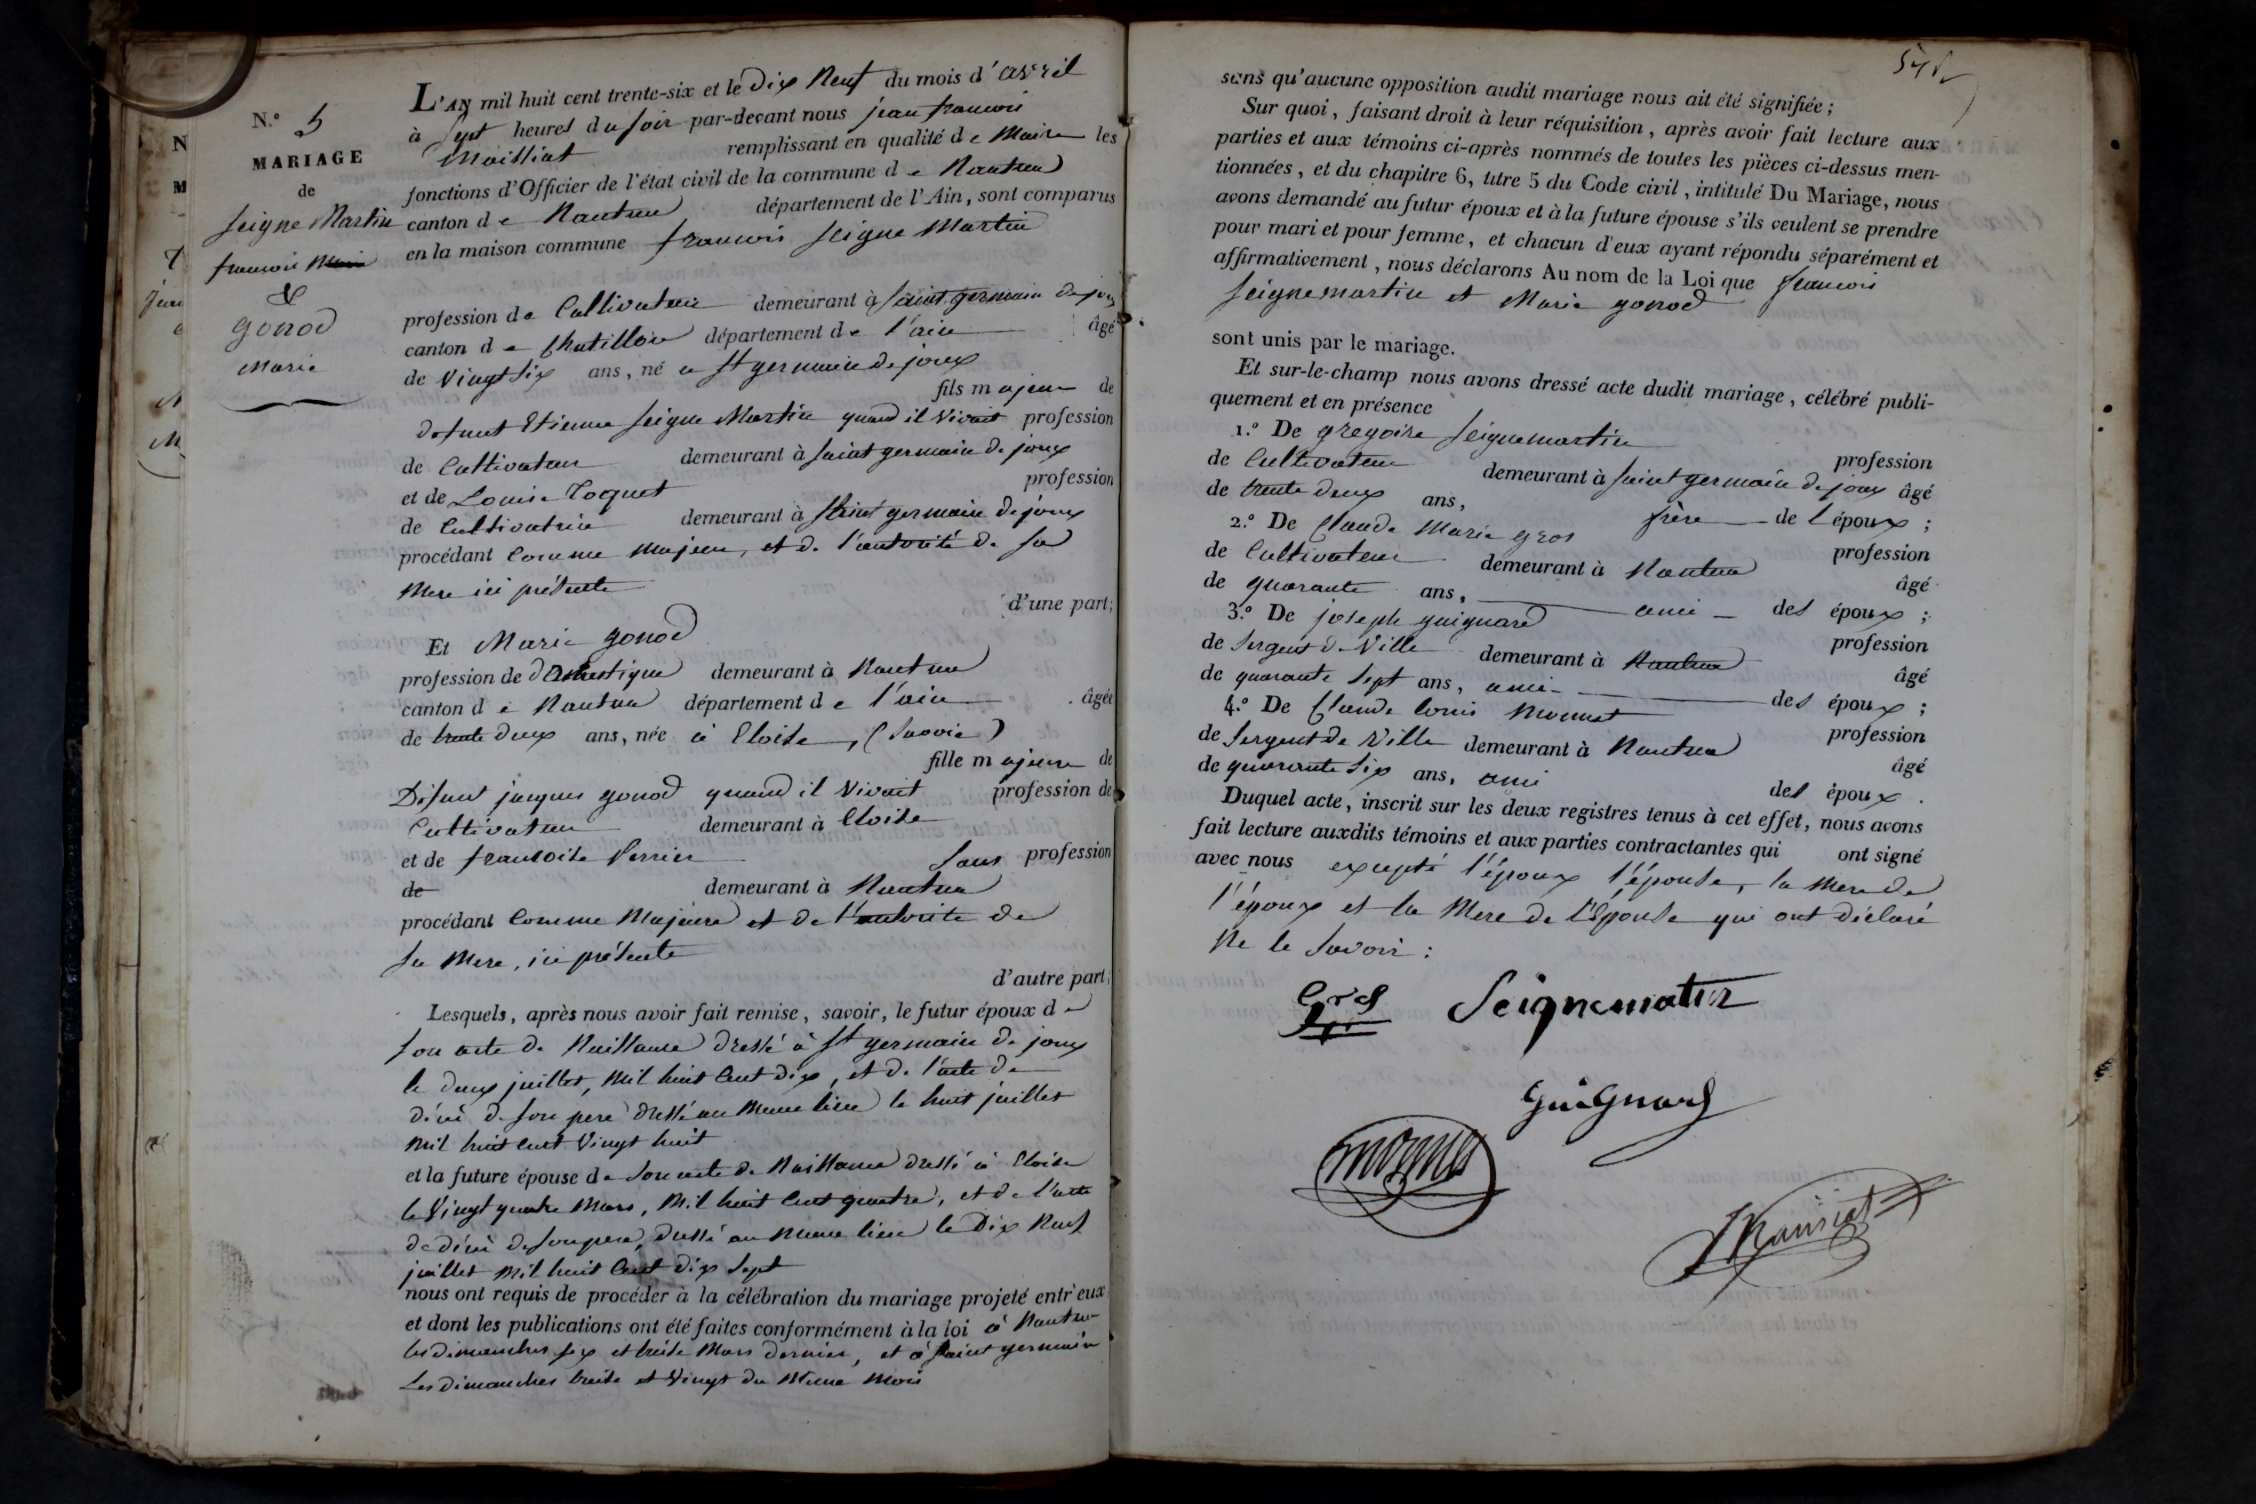 N.o 5
MARIAGE
de
Seigne Martin
francois Marie
&
gonod
Marie
L'AN mil huit cent trente-six et le Dix Neuf du mois d'avril
à Sept heures du soir par-devant nous jean francois
Mailliat remplissant en qualité de Maire les
fonctions d'Officier de l'état civil de la commune de Nantua
canton de Nantua département de l'Ain, sont comparus
en la maison commune francois Seigne Martin
profession de Cultivateur demeurant à Saint germain de joux
canton de Chatillon département de l'ain âgé
de Vingt Six ans, né a St germain de joux
fils majeur de
defunt Etienne Seigne Martin quand il Vivait profession
de Cultivateur demeurant à Saint germain de joux
et de Louise Toquet profession
de Cultivatrice demeurant à Saint germain de joux
procédant Comme Majeur, et de l'autorité de Sa
Mere ici présente
d'une part;
Et Marie gonod
profession de domestique demeurant à Nantua
canton de Nantua département de l'ain âgée
de trente deux ans, née à Eloise, (Savoie)
fille majeure de
Défunt jacques gonod quand il Vivait profession de
Cultivateur demeurant à Eloise
et de francoise Perrier Sans profession
de demeurant à Nantua
procédant Comme Majeure et de l'autorité de
Sa Mere, ici présente
d'autre part;
Lesquels, après nous avoir fait remise, savoir, le futur époux de
Son acte de Naissance dressé à St germain de joux
le deux juillet, Mil huit Cent dix, et de l'acte de
décès de Son pere dressé au Meme lieu le huit juillet
Mil huit Cent Vingt huit
et la future épouse de Son acte de Naissance dressé à Eloise
le Vingt quatre Mars, Mil huit Cent quatre, et de l'acte
de décès de Son pere, dressé au Meme lieu le Dix Neuf
juillet Mil huit Cent dix Sept
nous ont requis de procéder à la célébration du mariage projeté entr'eux
et dont les publications ont été faites conformément à la loi à Nantua
les dimanches six et treize Mars dernier, et à Saint germain
Les dimanches treize et Vingt du Meme Mois
sans qu'aucune opposition audit mariage nous ait été signifiée;
Sur quoi, faisant droit à leur réquisition, après avoir fait lecture aux
parties et aux témoins ci-après nommés de toutes les pièces ci-dessus men-
tionnées, et du chapitre 6, titre 5 du Code civil, intitulé Du Mariage, nous
avons demandé au futur époux et à la future épouse s'ils veulent se prendre
pour mari et pour femme, et chacun d'eux ayant répondu séparément et
affirmativement, nous déclarons Au nom de la Loi que francois
Seignemartin et Marie gonod
sont unis par le mariage.
Et sur-le-champ nous avons dressé acte dudit mariage, célébré publi-
quement et en présence
1.o De gregoire Seignemartin profession
de Cultivateur demeurant à Saint germain de joux âgé
de trente deux ans, frère de l'époux;
2.o De Claude Marie gros profession
de Cultivateur demeurant à Nantua âgé
de quarante ans, ami des époux;
3.o De joseph guignard profession
de Sergent de Ville demeurant à Nantua âgé
de quarante Sept ans, ami des époux;
4.o De Claude Louis Monnet profession
de Sergent de Ville demeurant à Nantua âgé
de quarante Six ans, ami des époux.
Duquel acte, inscrit sur les deux registres tenus à cet effet, nous avons
fait lecture auxdits témoins et aux parties contractantes qui ont signé
avec nous excepté l'époux l'épouse, la Mere de
l'époux et la Mere de l'Epouse qui ont déclaré
Ne le Savoir:
Gros Seignematin
GuiGnard